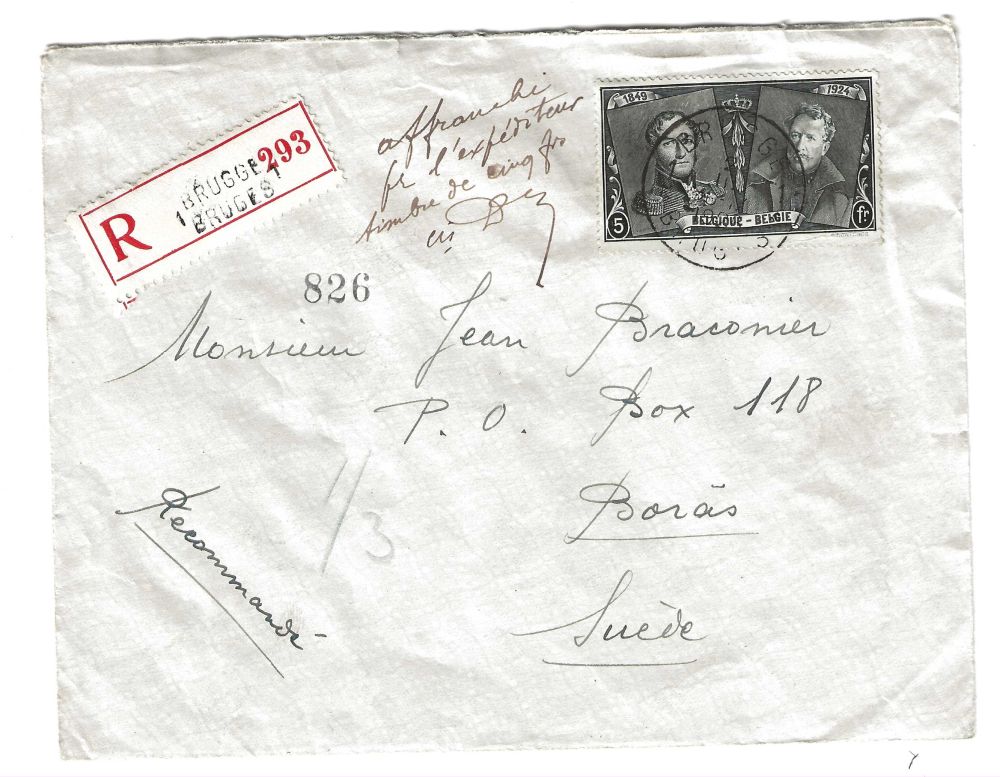 1849 1924
5 BELGIQUE - BELGIE fr
affranchi
pr l'expéditeur
timbre de cinq frs
R
1 BRUGGE 1
BRUGES
293
826
Monsieur Jean Braconier
P. O. Box 118
Borås
Suède
Recommandé
1/3